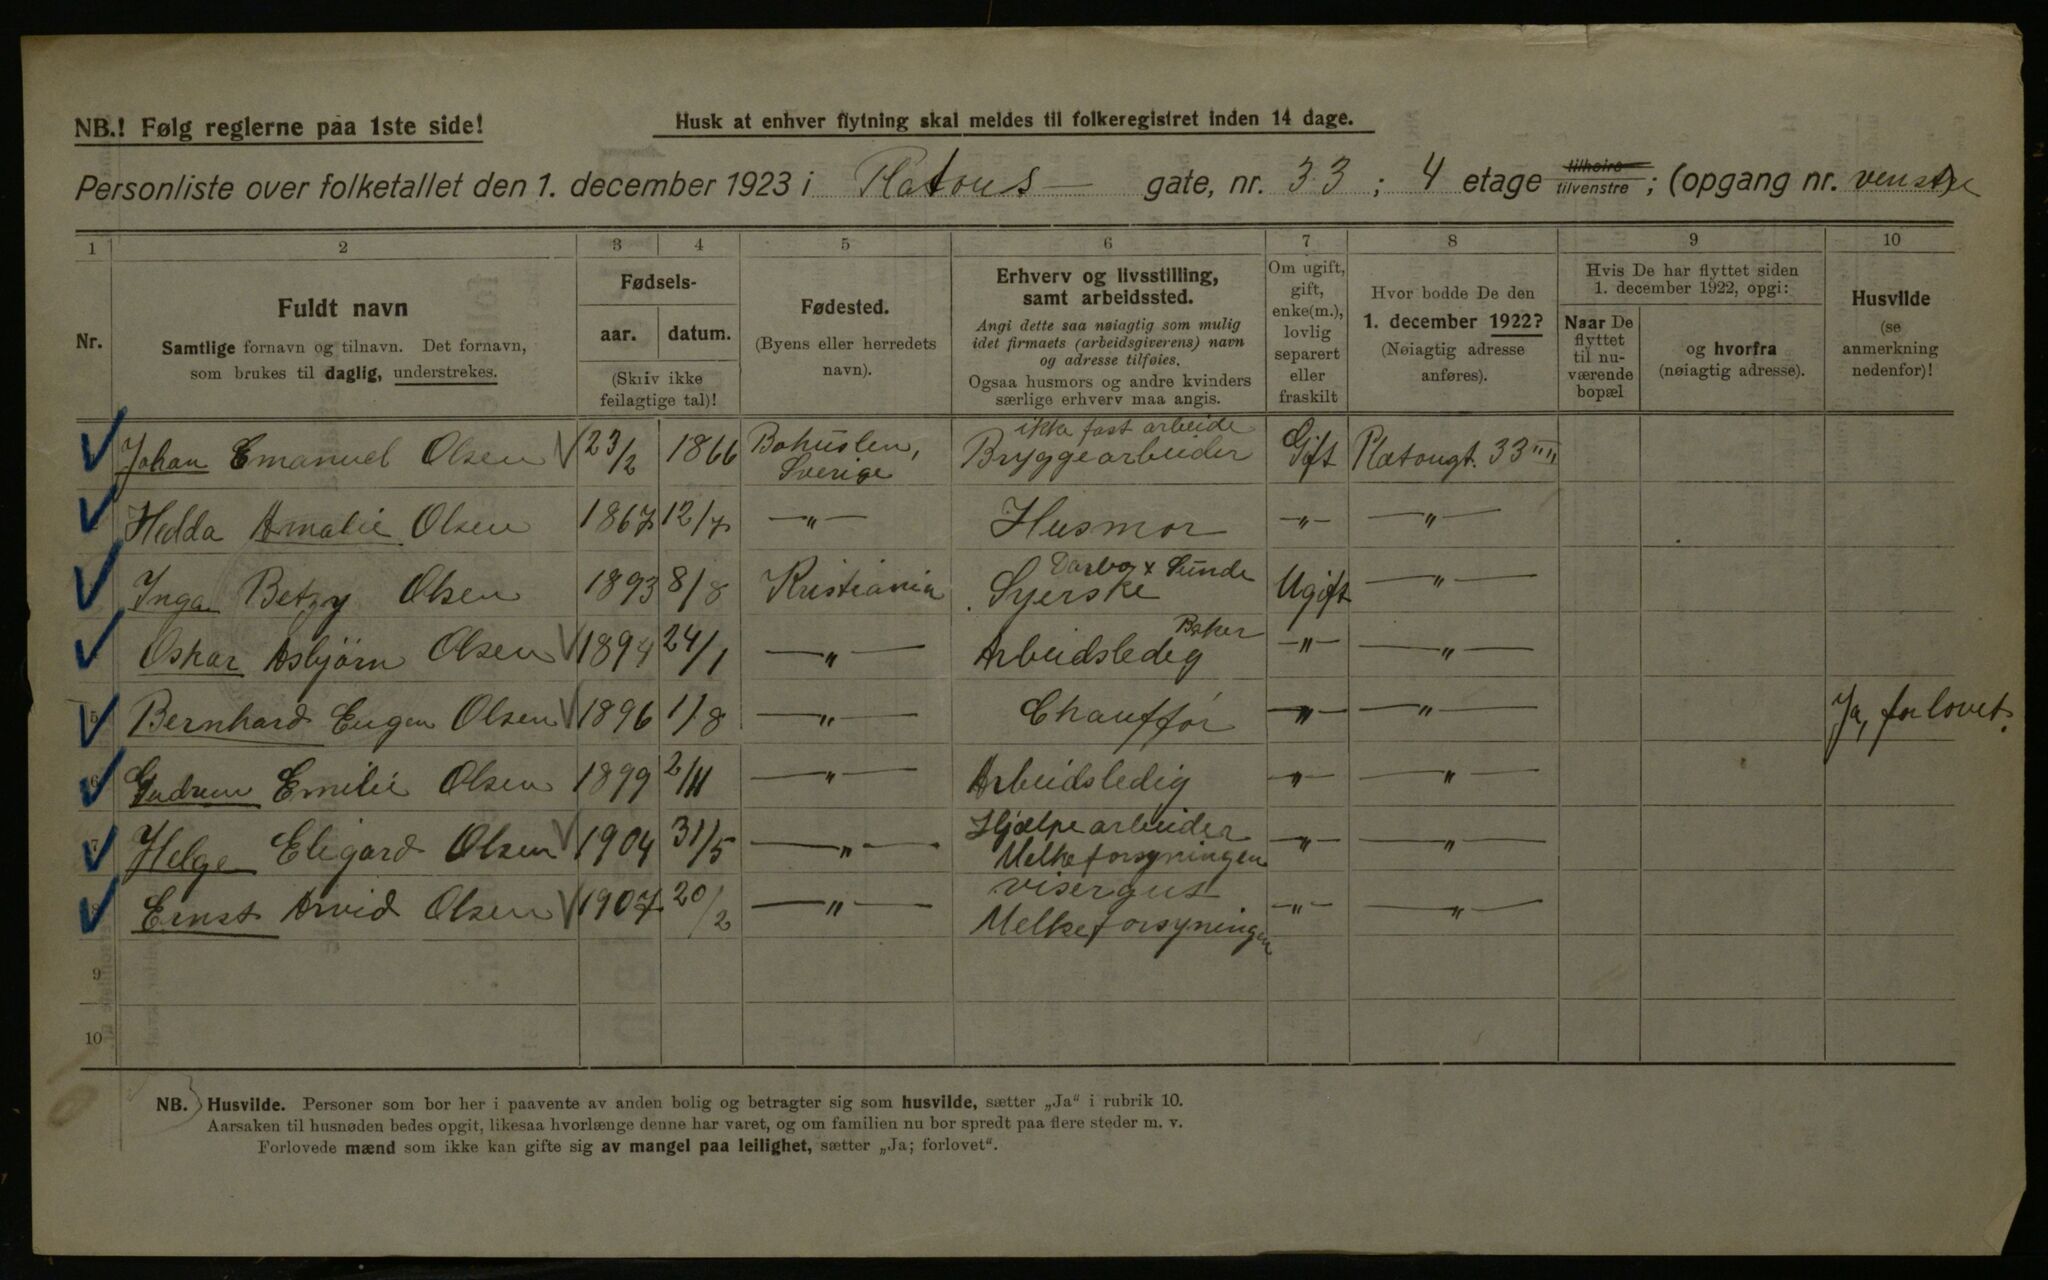 NB.! Følg reglerne paa 1ste side!
Husk at enhver flytning skal meldes til folkeregistret inden 14 dage.
Personliste over folketallet den 1. december 1923 i Platous— gate, nr. 33 ; 4 etage tilhøire tilvenstre ; (opgang nr. venstre
1 2 3 4 5 6 7 8 9 10
Nr.
Fuldt navn
Samtlige fornavn og tilnavn. Det fornavn,
som brukes til daglig, understrekes.
Fødsels-
aar. datum.
(Skriv ikke
feilagtige tal)!
Fødested.
(Byens eller herredets
navn).
Erhverv og livsstilling,
samt arbeidssted.
Angi dette saa nøiagtig som mulig
idet firmaets (arbeidsgiverens) navn
og adresse tilføies.
Ogsaa husmors og andre kvinders
særlige erhverv maa angis.
Om ugift,
gift,
enke(m.),
lovlig
separert
eller
fraskilt
Hvor bodde De den
1. december 1922?
(Nøiagtig adresse
anføres).
Hvis De har flyttet siden
1. december 1922, opgi:
Naar De
flyttet
til nu-
værende
bopæl
og hvorfra
(nøiagtig adresse).
Husvilde
(se
anmerkning
nedenfor)!
ikke fast arbeide
Johan Emanuel Olsen 23/2 1866 Bohuslen, Sverige Bryggearbeider Gift Platougt. 33 IIII
Hedda Amalie Olsen 1867 12/7 —"— Husmor —"— —"—
Darbo x Sunde
Inga Betzy Olsen 1893 8/8 Kristiania Syerske Ugift —"—
Baker
Oskar Asbjørn Olsen 1894 24/1 —"— Arbeidsledig —"— —"—
5 Bernhard Eugen Olsen 1896 1/8 —"— Chauffør —"— —"— Ja, forlovet.
6 Gudrun Emilie Olsen 1899 2/11 —"— Arbeidsledig —"— —"—
7 Helge Eligard Olsen 1904 31/5 —"— Hjælpearbeider —"— —"—
Melkeforsyningen
8 Ernst Arvid Olsen 1907 20/2 —"— visergut —"— —"—
Melkeforsyningen
9
10
NB. Husvilde. Personer som bor her i paavente av anden bolig og betragter sig som husvilde, sætter „Ja" i rubrik 10.
Aarsaken til husnøden bedes opgit, likesaa hvorlænge denne har varet, og om familien nu bor spredt paa flere steder m. v.
Forlovede mænd som ikke kan gifte sig av mangel paa leilighet, sætter „Ja; forlovet".